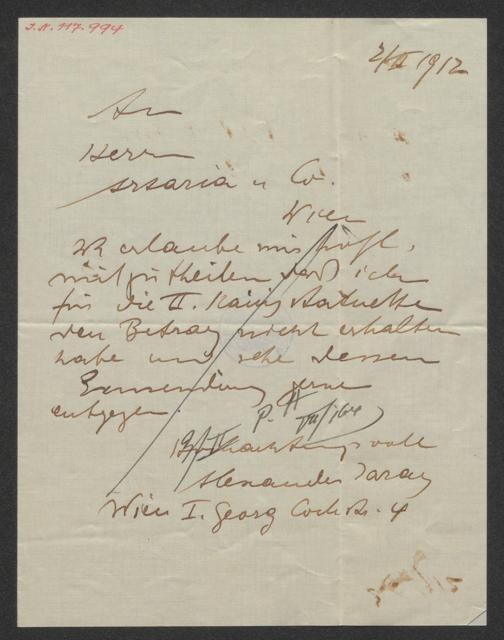 J.N. 117.994
2/II 1912
An
Herrn
Artaria u Co.
Wien
Ich erlaube mir höfl.
mitzutheilen daß ich
für die II. Kainz Statuette
den Betrag nicht erhalten
habe und sehe dessen
Einsendung gerne
entgegen.
p. A
Hochachtungsvoll
Alexander Jaray
Wien I. Georg Cochstr. 4